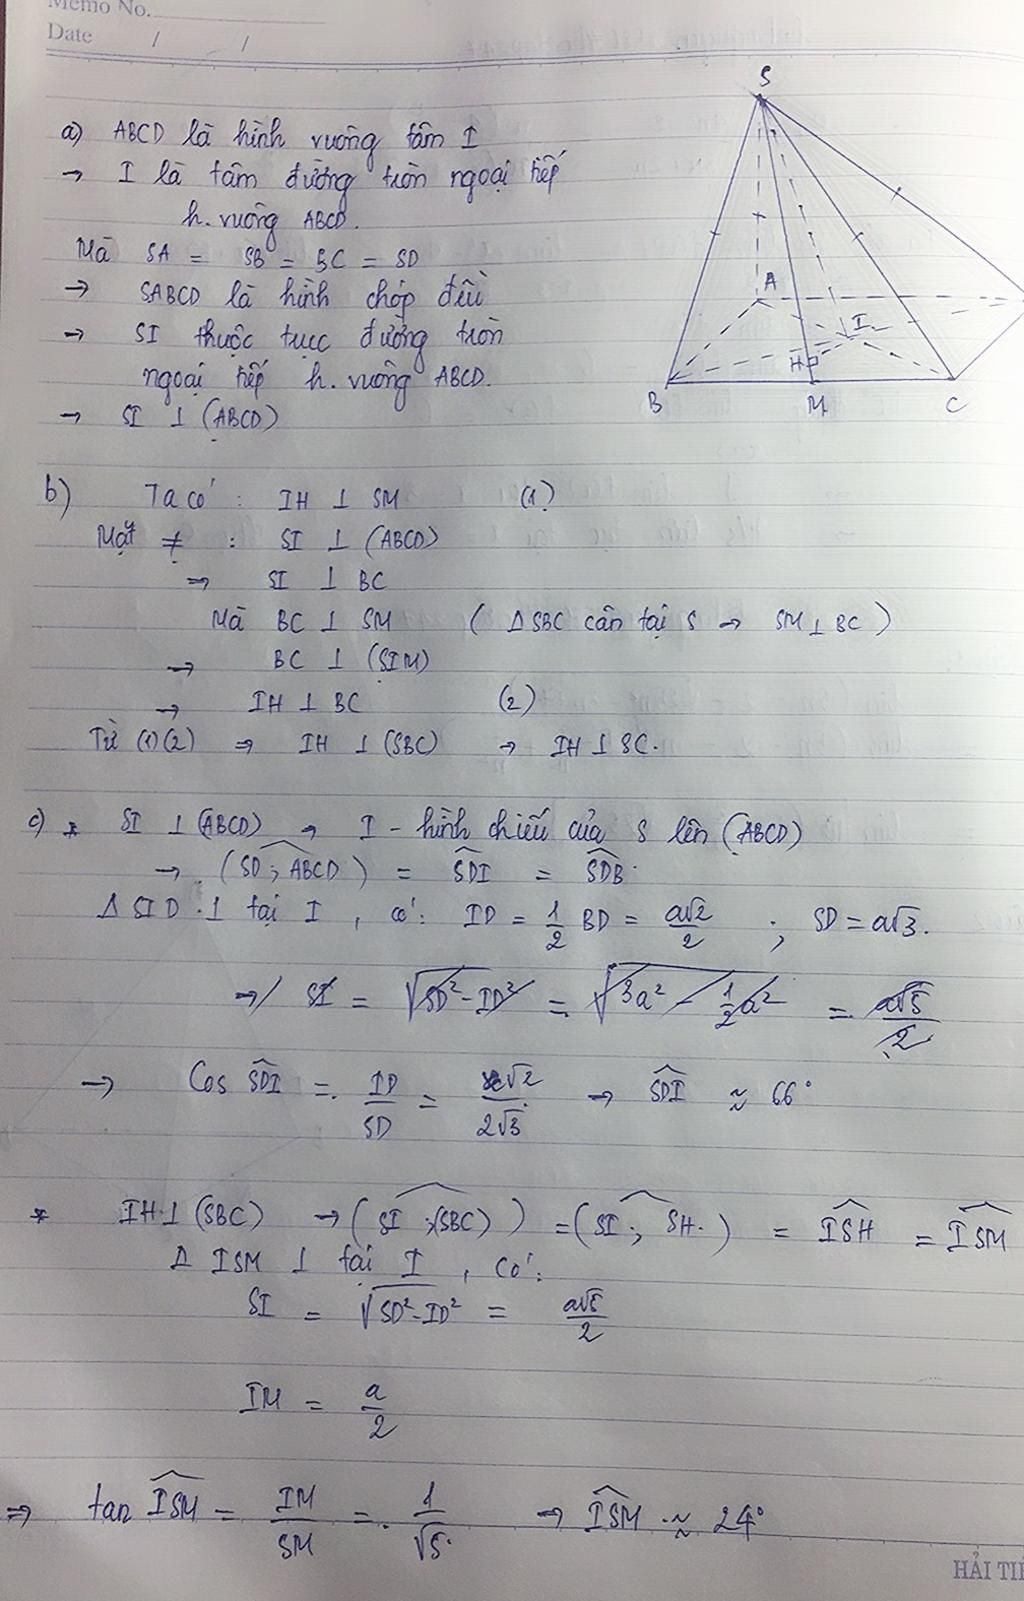 Memo No.
Date / /
S
A
I
H
B
M
C
a) ABCD là hình vuông tâm I
→ I là tâm đường tròn ngoại tiếp
h. vuông ABCD.
Mà SA = SB = BC = SD
→ SABCD là hình chóp đều
→ SI thuộc trục đường tròn
ngoại tiếp h. vuông ABCD.
→ SI ⊥ (ABCD)
b) Ta có : IH ⊥ SM (1)
Mặt ≠ : SI ⊥ (ABCD)
→ SI ⊥ BC
Mà BC ⊥ SM ( Δ SBC cân tại S → SM ⊥ BC )
→ BC ⊥ (SIM)
→ IH ⊥ BC (2)
Từ (1)(2) ⇒ IH ⊥ (SBC) → IH ⊥ SC.
c) * SI ⊥ (ABCD) → I - hình chiếu của S lên (ABCD)
→ (SD ; ABCD) = SDI = SDB.
Δ SID ⊥ tại I , có: ID = 1/2 BD = a√2/2 ; SD = a√3.
→ SI = √SD² - ID² = √3a² - 1/2 a² = a√5/2
→ Cos SDI = ID/SD = √2/2√3 → SDI ≈ 66°
* IH ⊥ (SBC) → (SI ; (SBC)) = (SI ; SH.) = ISH = ISM
Δ ISM ⊥ tại I , có:
SI = √SD² - ID² = a√5/2
IM = a/2
⇒ tan ISM = IM/SM = 1/√5 → ISM ≈ 24°
HẢI TIẾ